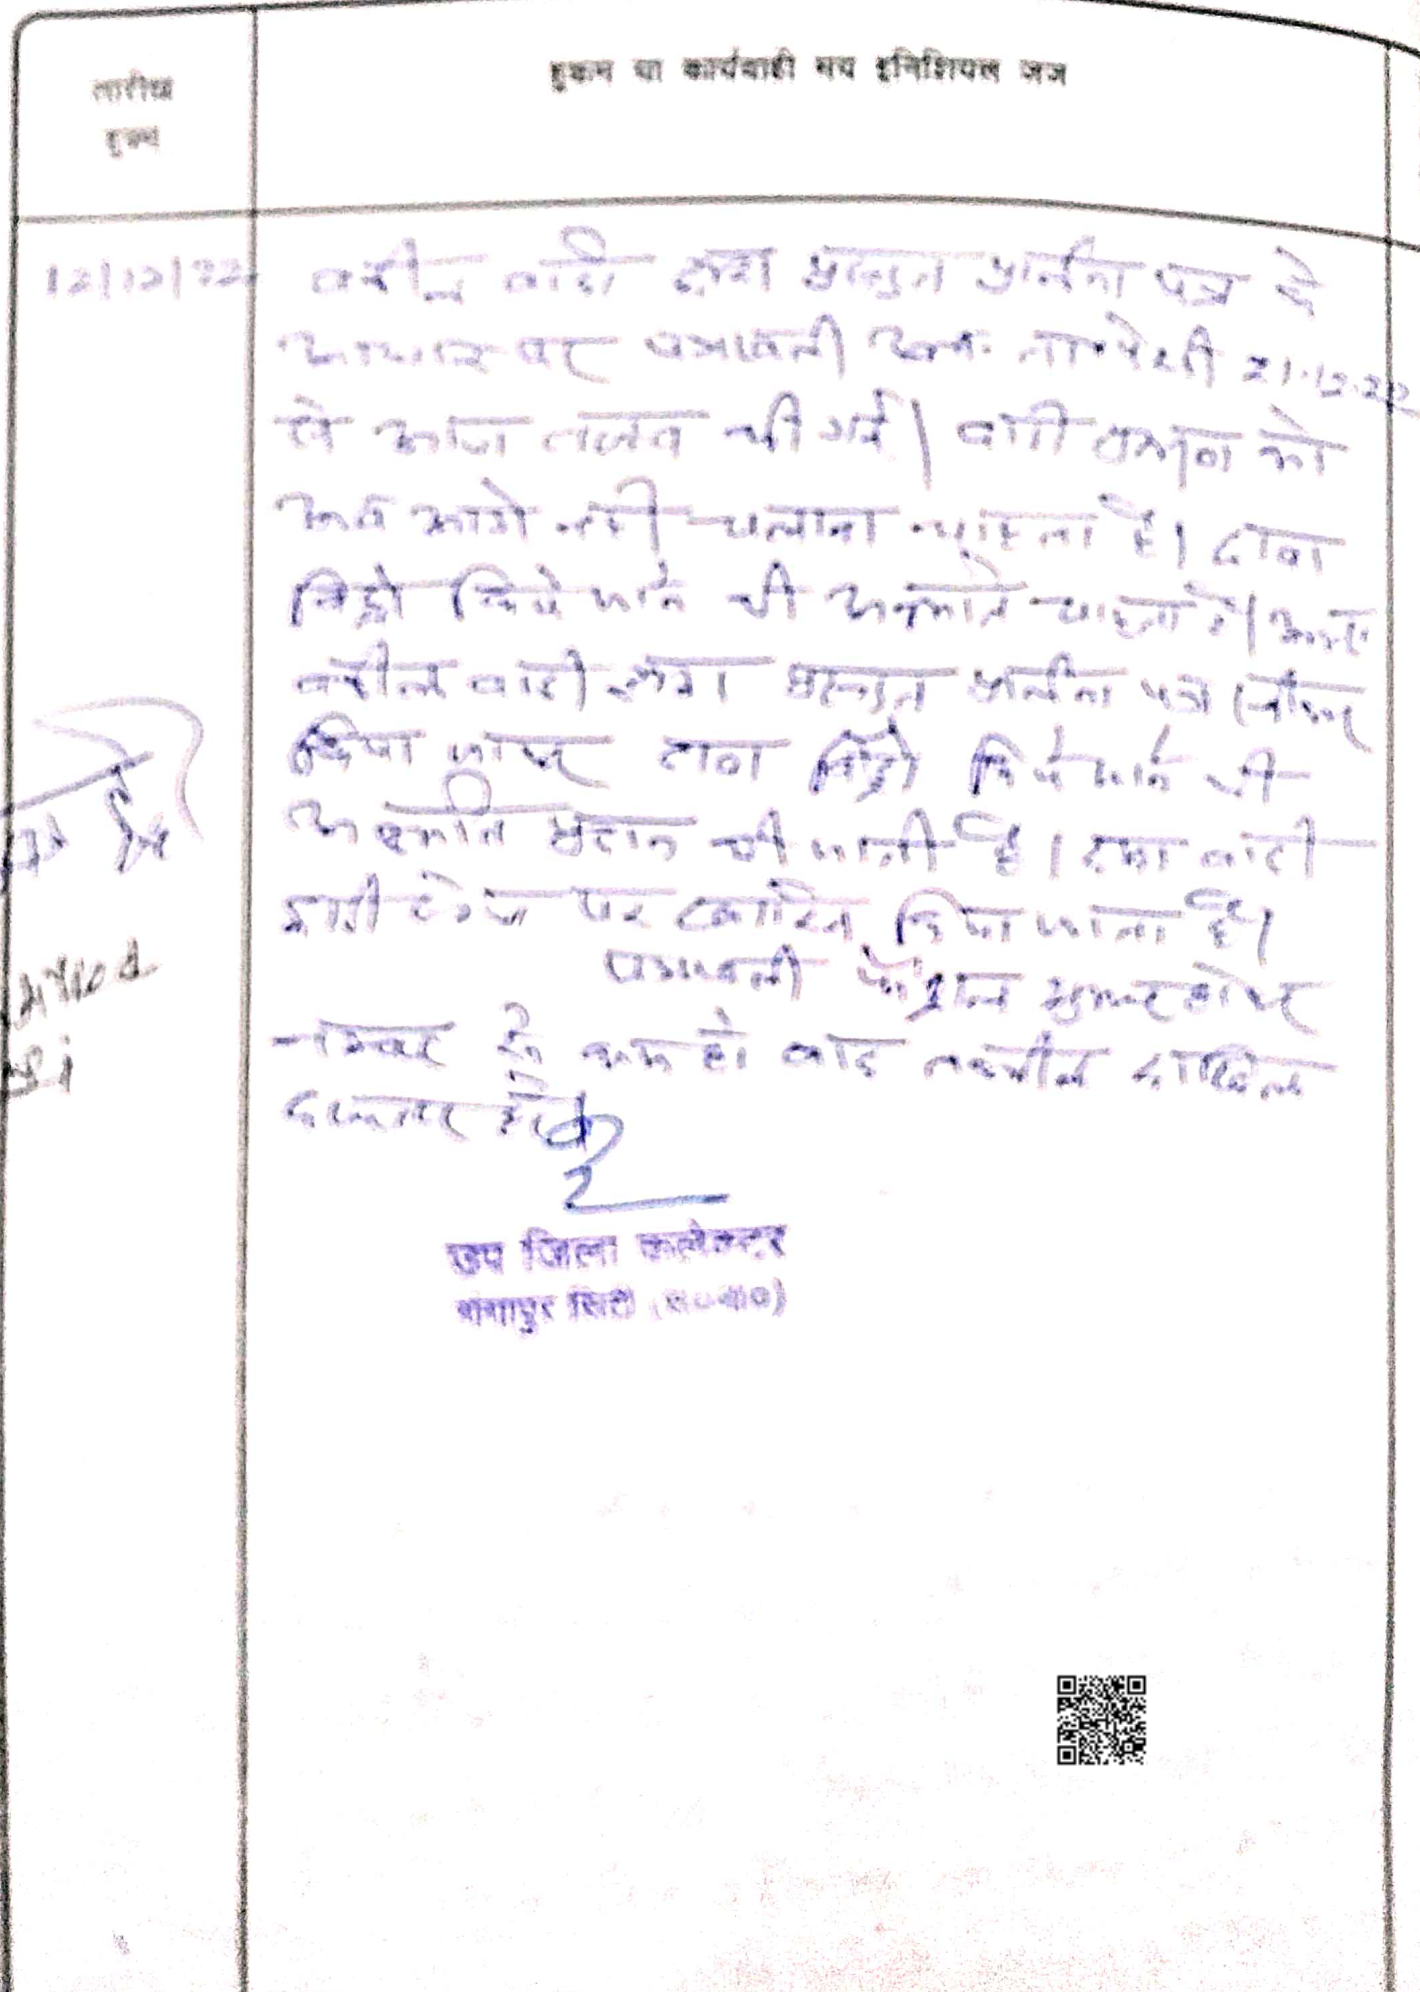 तारीख
हुक्म
हुकम या कार्यवाही मय इनिशियल जज
12/12/22 वकील वादी द्वारा प्रस्तुत प्रार्थना पत्र के
आधार पर पत्रावली अन्त. ता. पेशी 21.12.22
से आज तलब की गई। वादी प्रकरण को
अब आगे नहीं चलाना चाहता है। दावा
विड्रो किये जाने की अनुमति चाहता है। अतः
वकील वादी द्वारा प्रस्तुत प्रार्थना पत्र स्वीकार
किया जाकर दावा विड्रो किये जाने की
अनुमति प्रदान की जाती है। दावा वादी
इसी स्टेज पर खारिज किया जाता है।
पत्रावली फैशल शुमार होकर
नम्बर से कम हो बाद तकमील दाखिल
दफ्तर हो।
उप जिला कलेक्टर
गंगापुर सिटी (स०मा०)